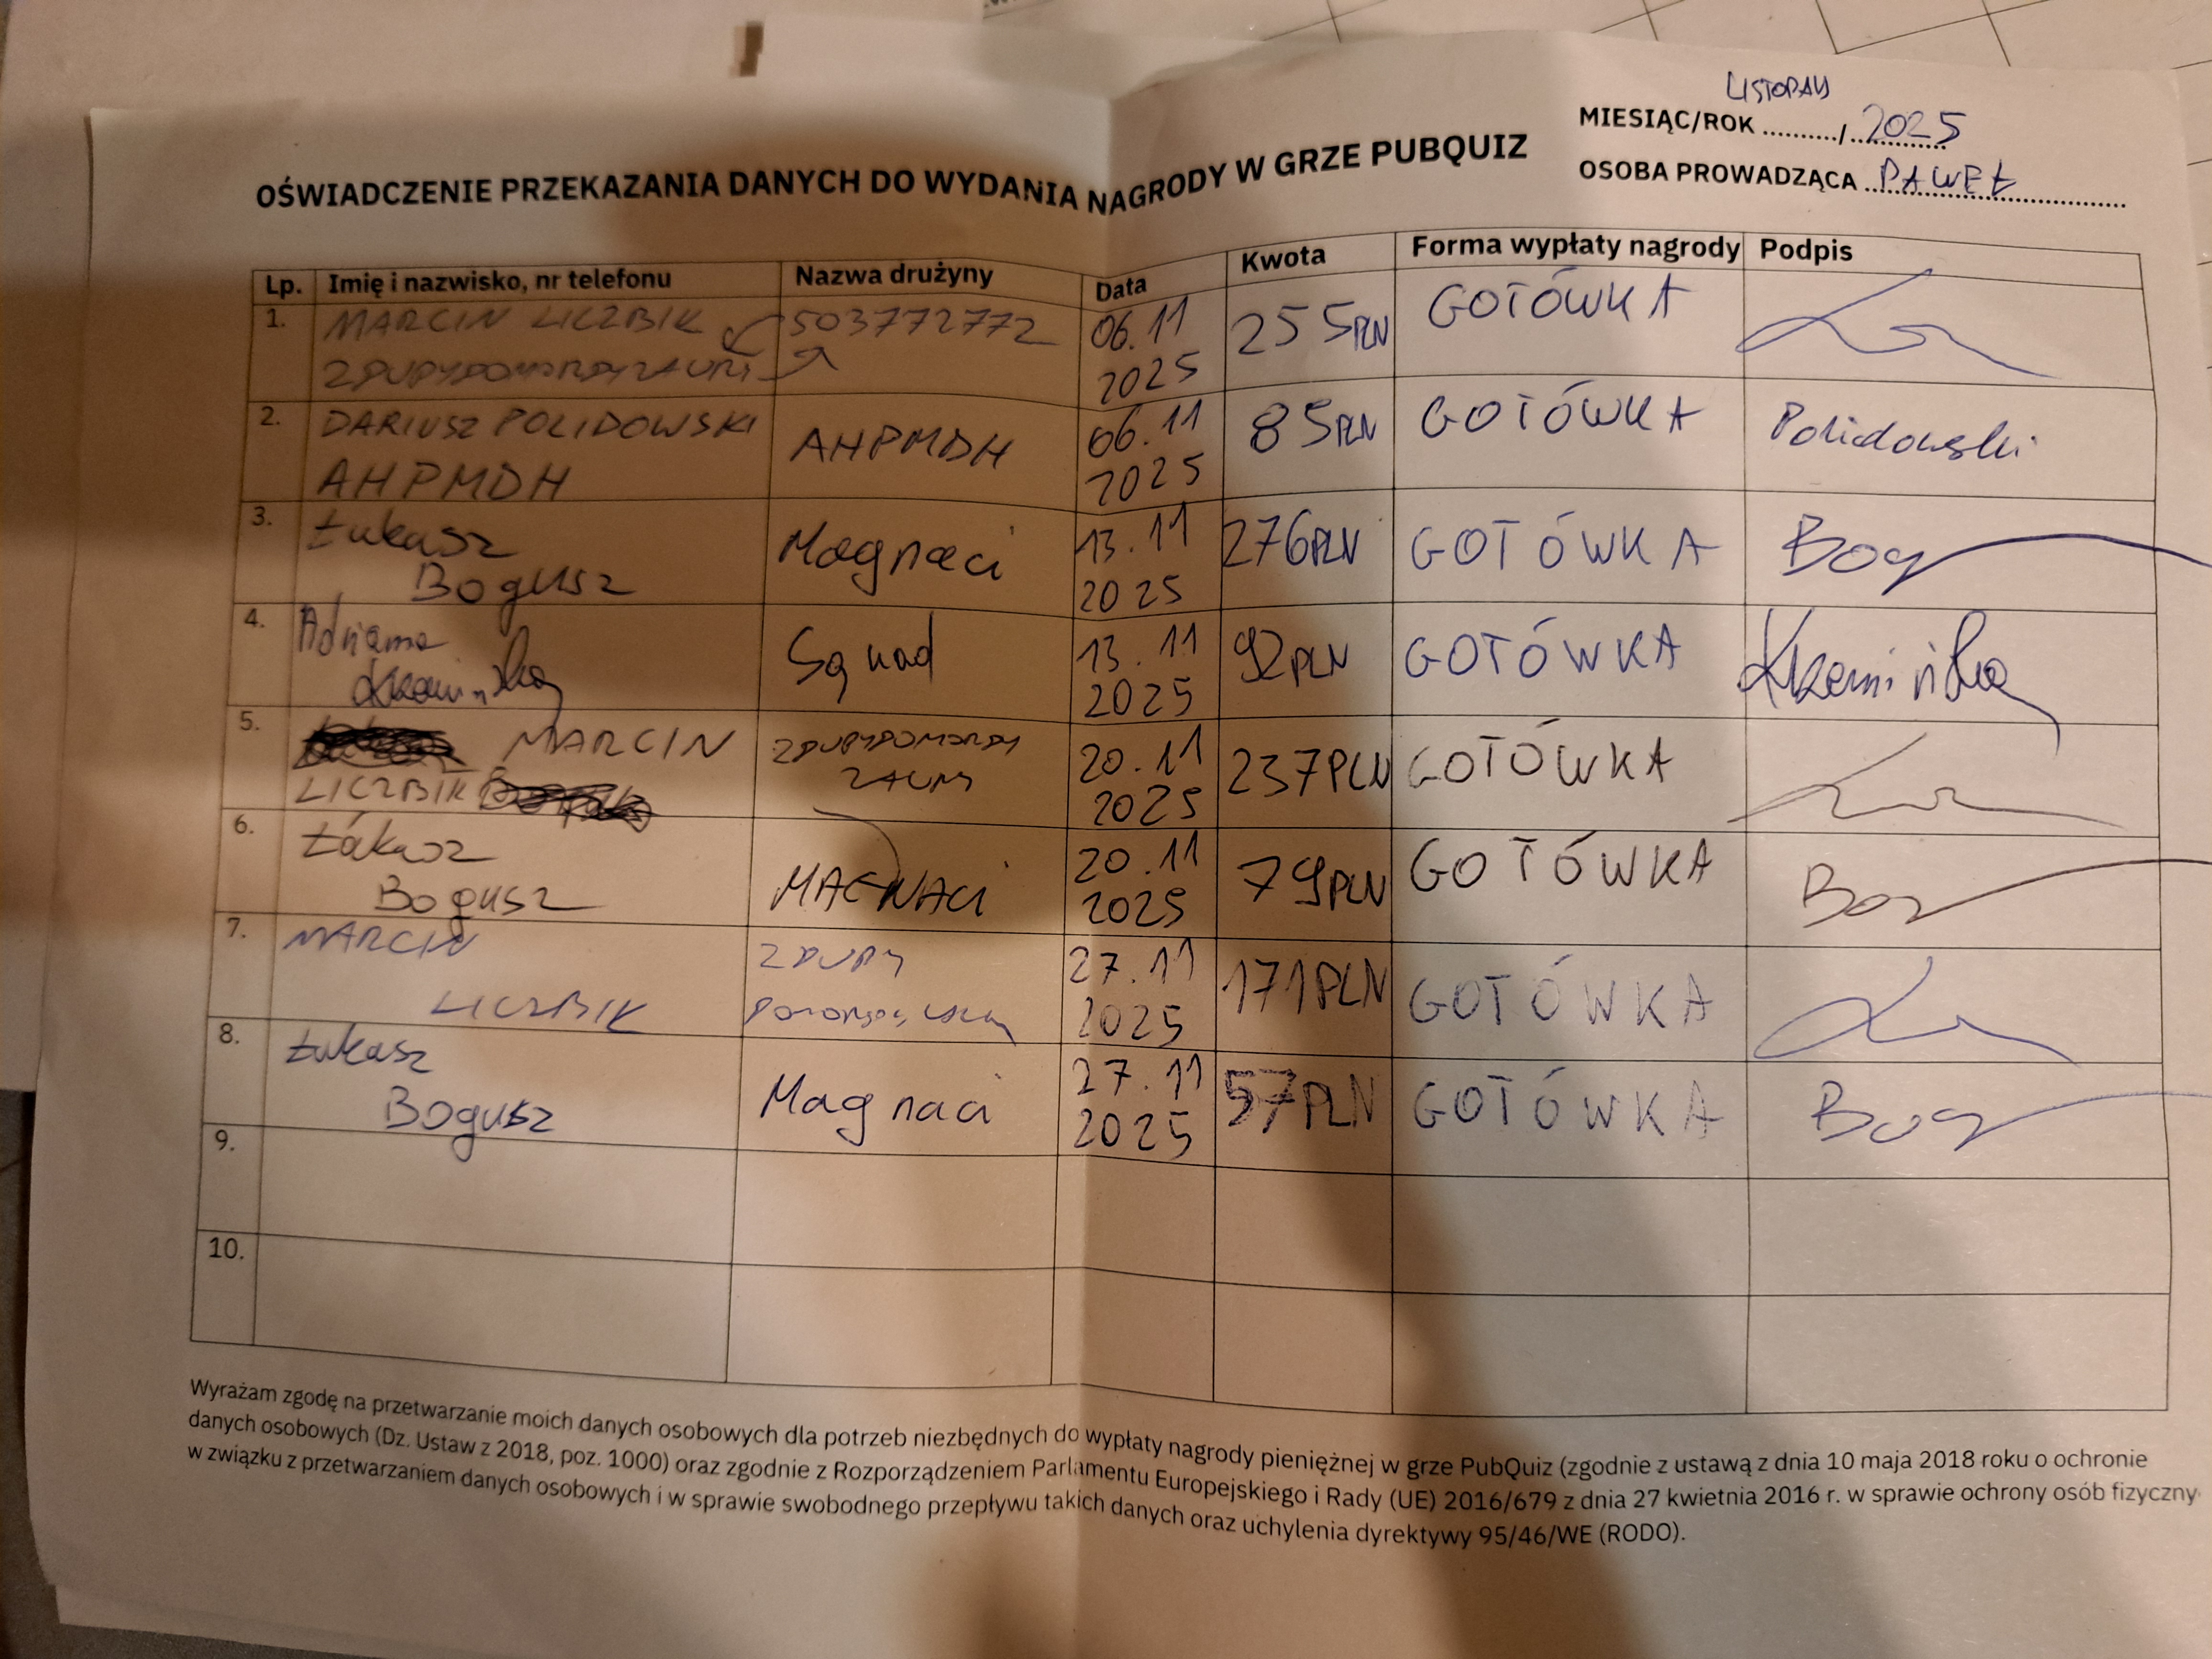 LISTOPAD
MIESIĄC/ROK ........../.. 2025
OSOBA PROWADZĄCA PAWEŁ
OŚWIADCZENIE PRZEKAZANIA DANYCH DO WYDANIA NAGRODY W GRZE PUBQUIZ
Lp. Imię i nazwisko, nr telefonu Nazwa drużyny Data Kwota Forma wypłaty nagrody Podpis
1. MARCIN LICZBIK 503772772 06.11 255PLN GOTÓWKA
ZDUPYDOMORDYZAURY 2025
2. DARIUSZ POLIDOWSKI AHPMDH 06.11 85PLN GOTÓWKA Polidowski
AHPMDH 2025
3. Łukasz Magnaci 13.11 276PLN GOTÓWKA Bog
Bogusz 2025
4. Adrianna Squad 13.11 92PLN GOTÓWKA Krzemińska
Krzemińska 2025
5. MARCIN ZDUPYDOMORDY 20.11 237PLN GOTÓWKA
LICZBIK ZAURY 2025
6. Łukasz MAGNACI 20.11 79PLN GOTÓWKA Bog
Bogusz 2025
7. MARCIN ZDUPY 27.11 171PLN GOTÓWKA
LICZBIK 2025
8. Łukasz Magnaci 27.11 57PLN GOTÓWKA Bog
Bogusz 2025
9.
10.
Wyrażam zgodę na przetwarzanie moich danych osobowych dla potrzeb niezbędnych do wypłaty nagrody pieniężnej w grze PubQuiz (zgodnie z ustawą z dnia 10 maja 2018 roku o ochronie
danych osobowych (Dz. Ustaw z 2018, poz. 1000) oraz zgodnie z Rozporządzeniem Parlamentu Europejskiego i Rady (UE) 2016/679 z dnia 27 kwietnia 2016 r. w sprawie ochrony osób fizyczny
w związku z przetwarzaniem danych osobowych i w sprawie swobodnego przepływu takich danych oraz uchylenia dyrektywy 95/46/WE (RODO).